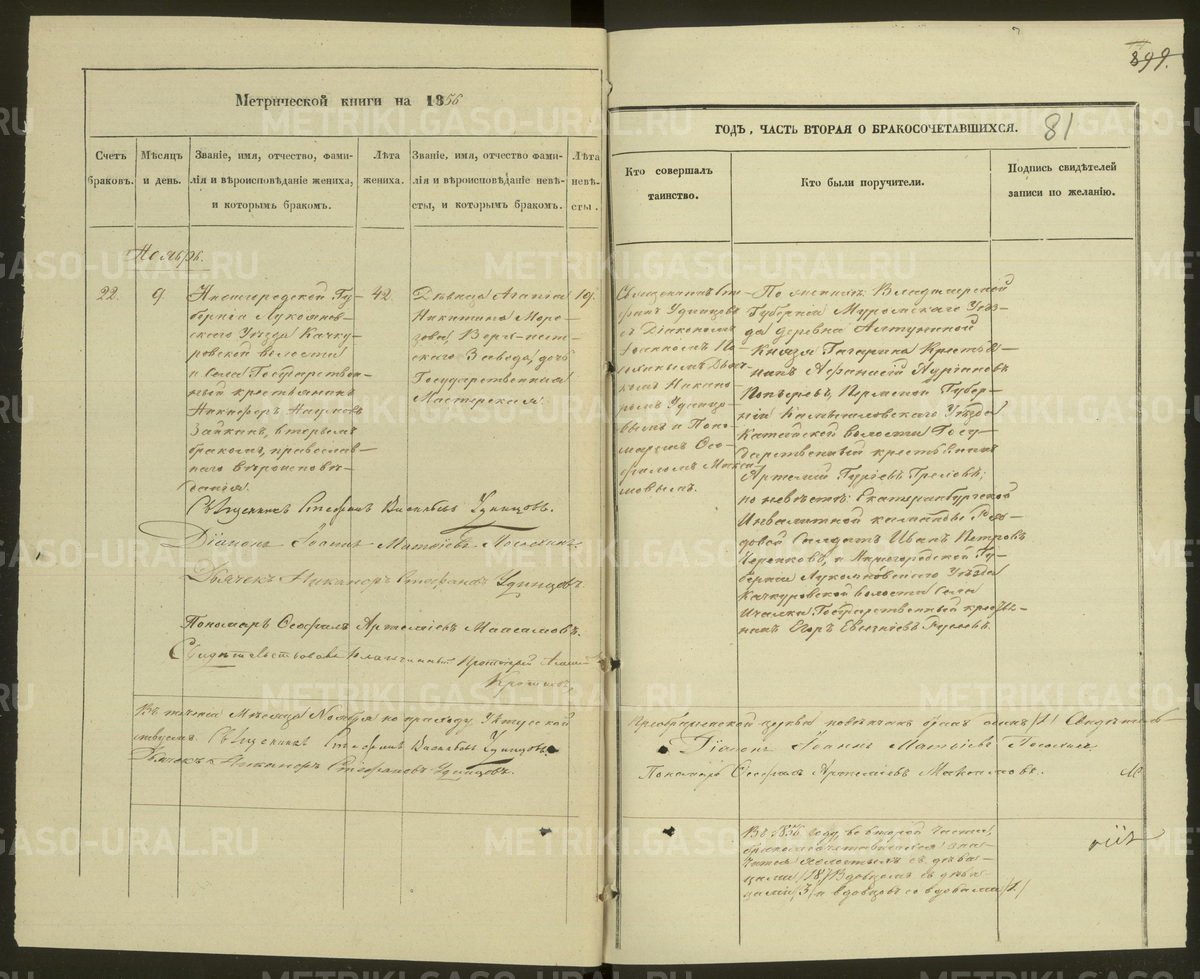 899.
Метрической книги на 1856
Счетъ браковъ.
Мѣсяцъ и день.
Званіе, имя, отчество, фами-
лія и вѣроисповѣданіе жениха,
и которымъ бракомъ.
Лѣта
жениха.
Званіе, имя, отчество фами-
лія и вѣроисповѣданіе невѣ-
сты, и которымъ бракомъ.
Лѣта
невѣ-
сты.
Ноябрь.
22.
9.
Нижегородской Гу-
берніи Лукоянов-
скаго Уѣзда Качку-
ровской волости
села Государствен-
ный крестьянинъ
Никифоръ Наумовъ
Зайкинъ, вторымъ
бракомъ, православ-
наго вѣроисповѣ-
данія.
42.
Дѣвица Агапія
Никитина Моро-
зова Верхъ-исет-
скаго Завода, дочь
19.
Священникъ Стефанъ Васильевъ Удинцовъ.
Діаконъ Іоаннъ Матѳіевъ
Дьячекъ Никаноръ Стефановъ Удинцовъ.
Пономарь Ѳеофилъ Артеміевъ Максимовъ.
Свидѣтельствовалъ Благочинный Протоіерей
Въ теченіи Мѣсяца Ноября по приходу Уктусской
Священникъ Стефанъ Васильевъ Удинцовъ
Дьячекъ Никаноръ Стефановъ Удинцовъ.
ГОДЪ, ЧАСТЬ ВТОРАЯ О БРАКОСОЧЕТАВШИХСЯ.
81
Кто совершалъ
таинство.
Кто были поручители.
Подпись свидѣтелей
записи по желанію.
Священникъ Сте-
фанъ Удинцовъ
съ Діакономъ
Іоанномъ
Дьяч-
комъ Никано-
ромъ Удинцо-
вымъ и Поно-
маремъ Ѳео-
филомъ Макси-
мовымъ.
По женихѣ: Владимирской
Губерніи Муромскаго Уѣз-
да деревни
Князя Гагарина Крестья-
нинъ Афанасій
Пермской Губер-
ніи Камышловскаго Уѣзда
Катайской волости Госу-
дарственный крестьянинъ
Артемій Гуріевъ
по невѣстѣ: Екатеринбургской
Инвалидной команды Ря-
довой Солдатъ Иванъ Петровъ
и Нижегородской Гу-
берніи Лукояновскаго Уѣзда
Качкуровской волости Села
Ичалки Государственный кресть-
нинъ Егоръ Евгеніевъ
Преображенской церкви повѣнчанъ бракъ одинъ /1/
Діаконъ Іоаннъ Матѳіевъ
Пономарь Ѳеофилъ Артеміевъ Максимовъ.
Въ 1856 году, во второй части,
бракосочетавшихся зна-
чится холостымъ съ дѣви-
цами /18/ Вдовцемъ съ дѣви-
цами /3/ и вдовцовъ со вдовами /1/
METRIKI.GASO-URAL.RU